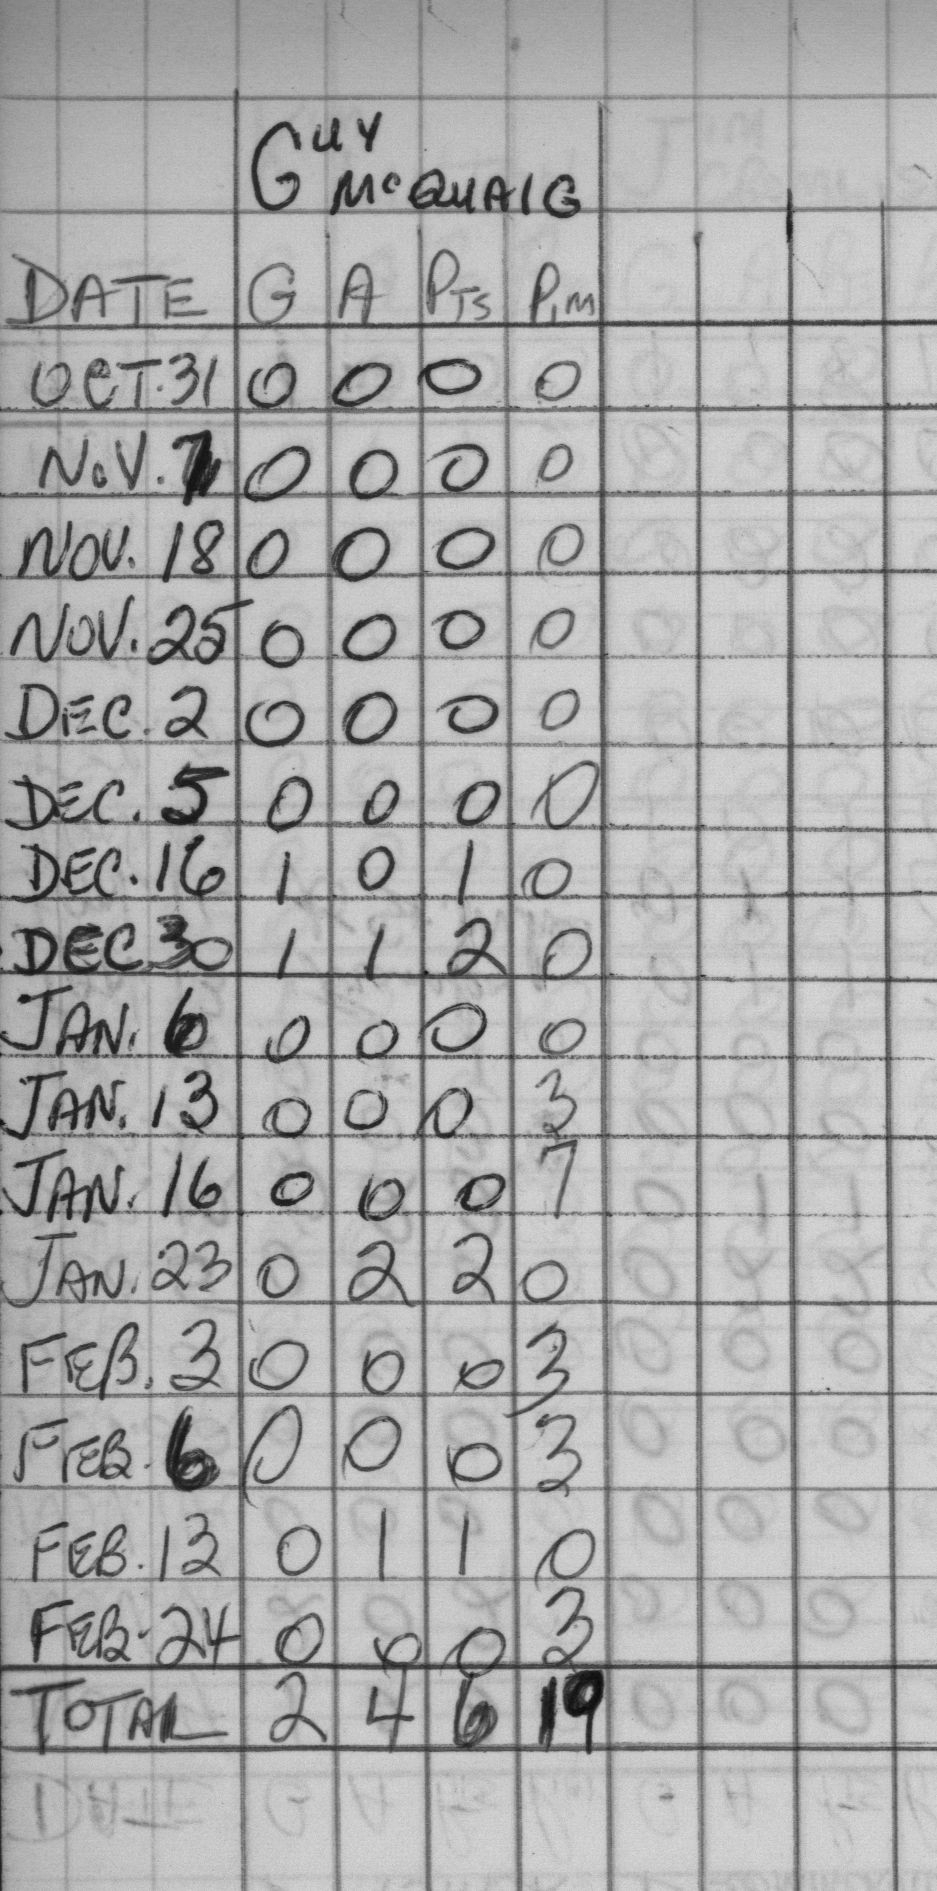 GUY
McQUAIG
DATE G A PTS PIM
OCT. 31 0 0 0 0
NOV. 7 0 0 0 0
NOV. 18 0 0 0 0
NOV. 25 0 0 0 0
DEC. 2 0 0 0 0
DEC. 5 0 0 0 0
DEC. 16 1 0 1 0
DEC 30 1 1 2 0
JAN. 6 0 0 0 0
JAN. 13 0 0 0 3
JAN. 16 0 0 0 7
JAN. 23 0 2 2 0
FEB. 3 0 0 0 3
FEB. 6 0 0 0 3
FEB. 13 0 1 1 0
FEB. 24 0 0 0 3
TOTAL 2 4 6 19